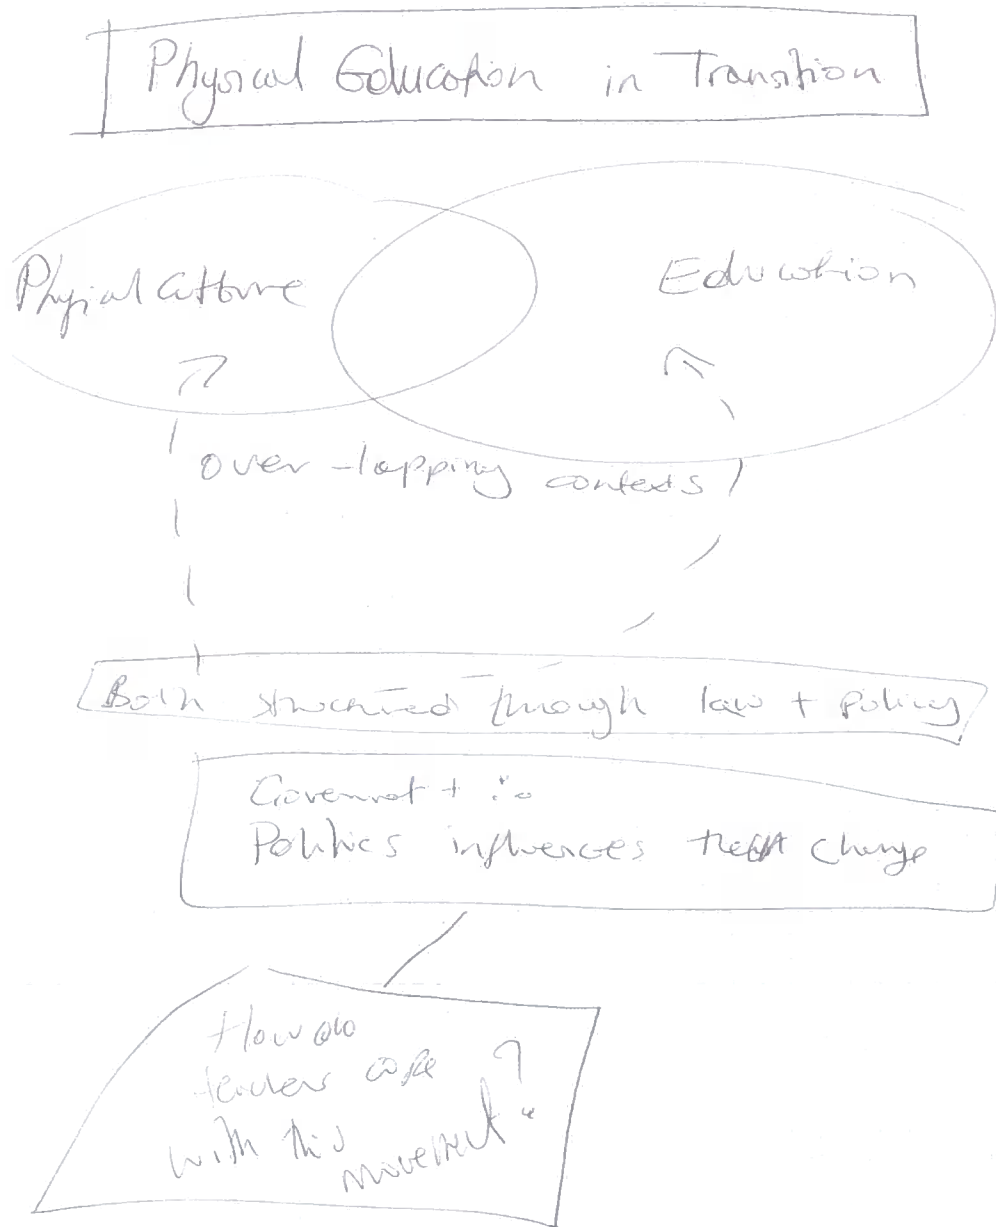 Physical Education in Transition
Physical Culture
Education
over-lapping contexts
Both structured through law + policy
Government + ∴
Politics influences change
How do
teachers cope
with this
movement?